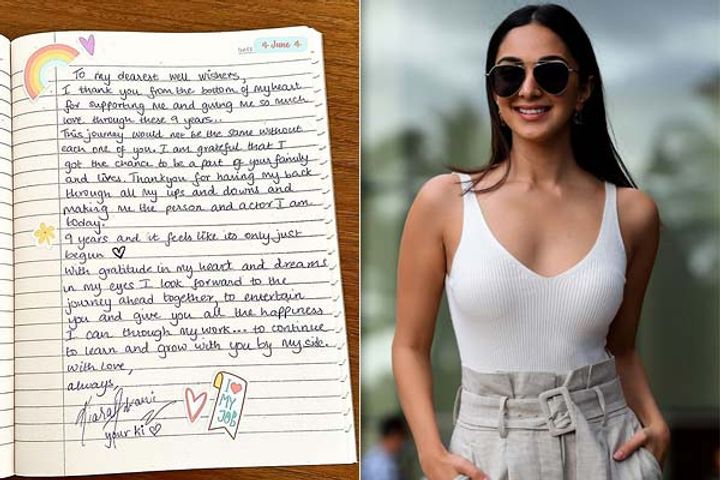 DATE 4 June 4
To my dearest well wishers,
I thank you from the bottom of my heart
for supporting me and giving me so much
love through these 9 years..
This journey would not be the same without
each one of you. I am grateful that I
got the chance to be a part of your family
and lives. Thankyou for having my back
through all my ups and downs and
making me the person and actor I am
today.
9 years and it feels like its only just
begun
With gratitude in my heart and dreams
in my eyes I look forward to the
journey ahead together, to entertain
you and give you all the happiness
I can through my work... to continue
to learn and grow with you by my side.
with love,
always,
Kiara Advani
your ki
I
MY
JOB